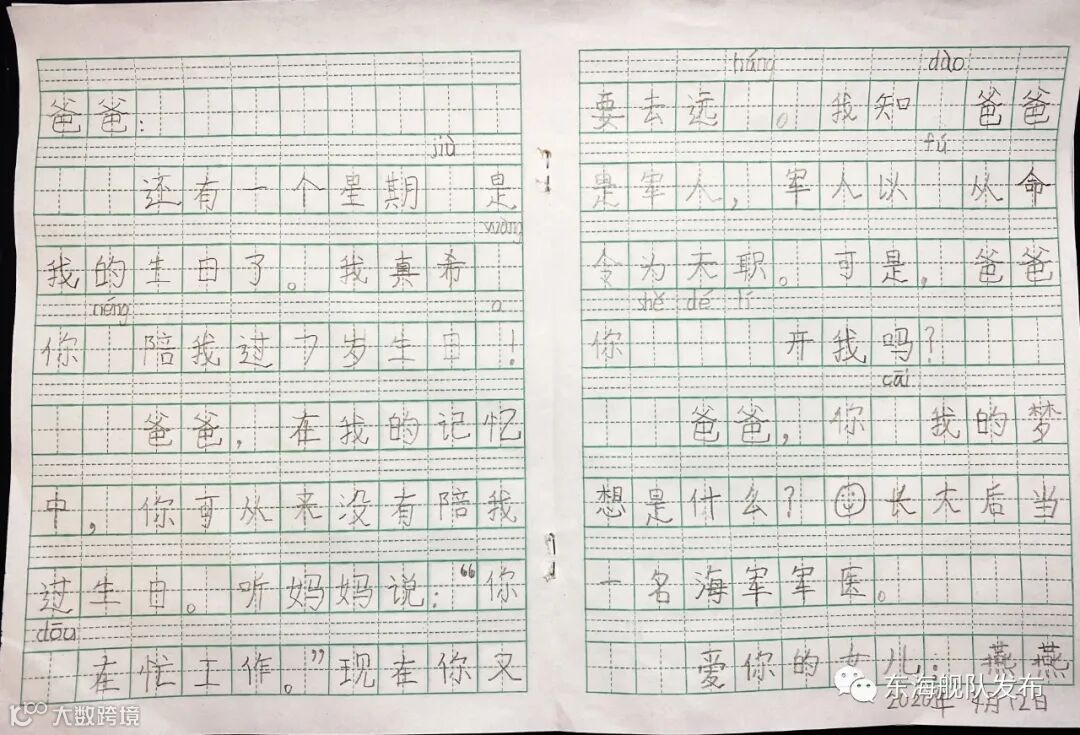 爸爸：
jiù
还有一个星期 是
wàng
我的生日了。我真希
néng a
你 陪我过7岁生日 ！
爸爸，在我的记忆
中，你可从来没有陪我
过生日。听妈妈说：“你
dōu
在忙工作。”现在你又
háng dào
要去远 。我知 爸爸
fú
是军人，军人以 从命
令为天职。可是，爸爸
shě dé lí
你 开我吗？
cāi
爸爸，你 我的梦
想是什么？ 长大后当
一名海军军医。
爱你的女儿：燕燕
2020年 4月12日
大数跨境
东海舰队发布